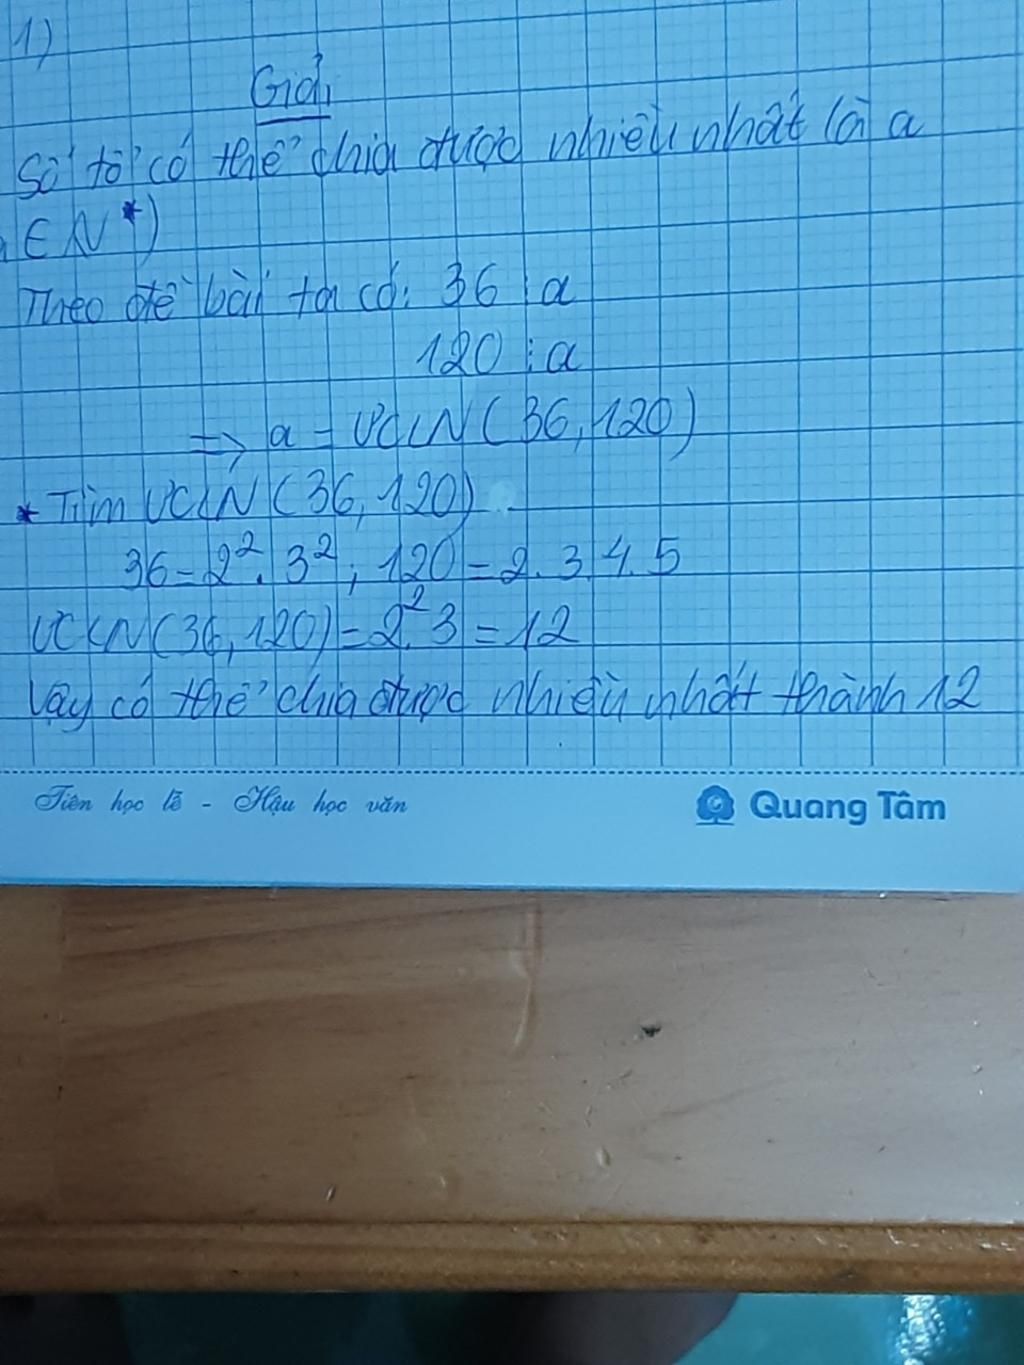 1)
Giải
Số tổ có thể chia được nhiều nhất là a
∈ N*)
Theo đề bài ta có: 36 ⋮ a
120 ⋮ a
=> a = ƯCLN(36, 120)
* Tìm ƯCLN(36, 120)
36 = 2². 3²; 120 = 2. 3. 4. 5
ƯCLN(36, 120) = 2². 3 = 12
Vậy có thể chia được nhiều nhất thành 12
Tiên học lễ - Hậu học văn
Quang Tâm